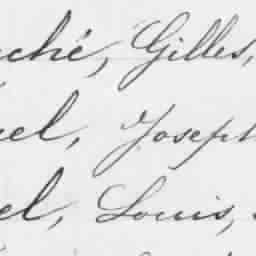 ché, Gilles,
el, Joseph
el, Louis,